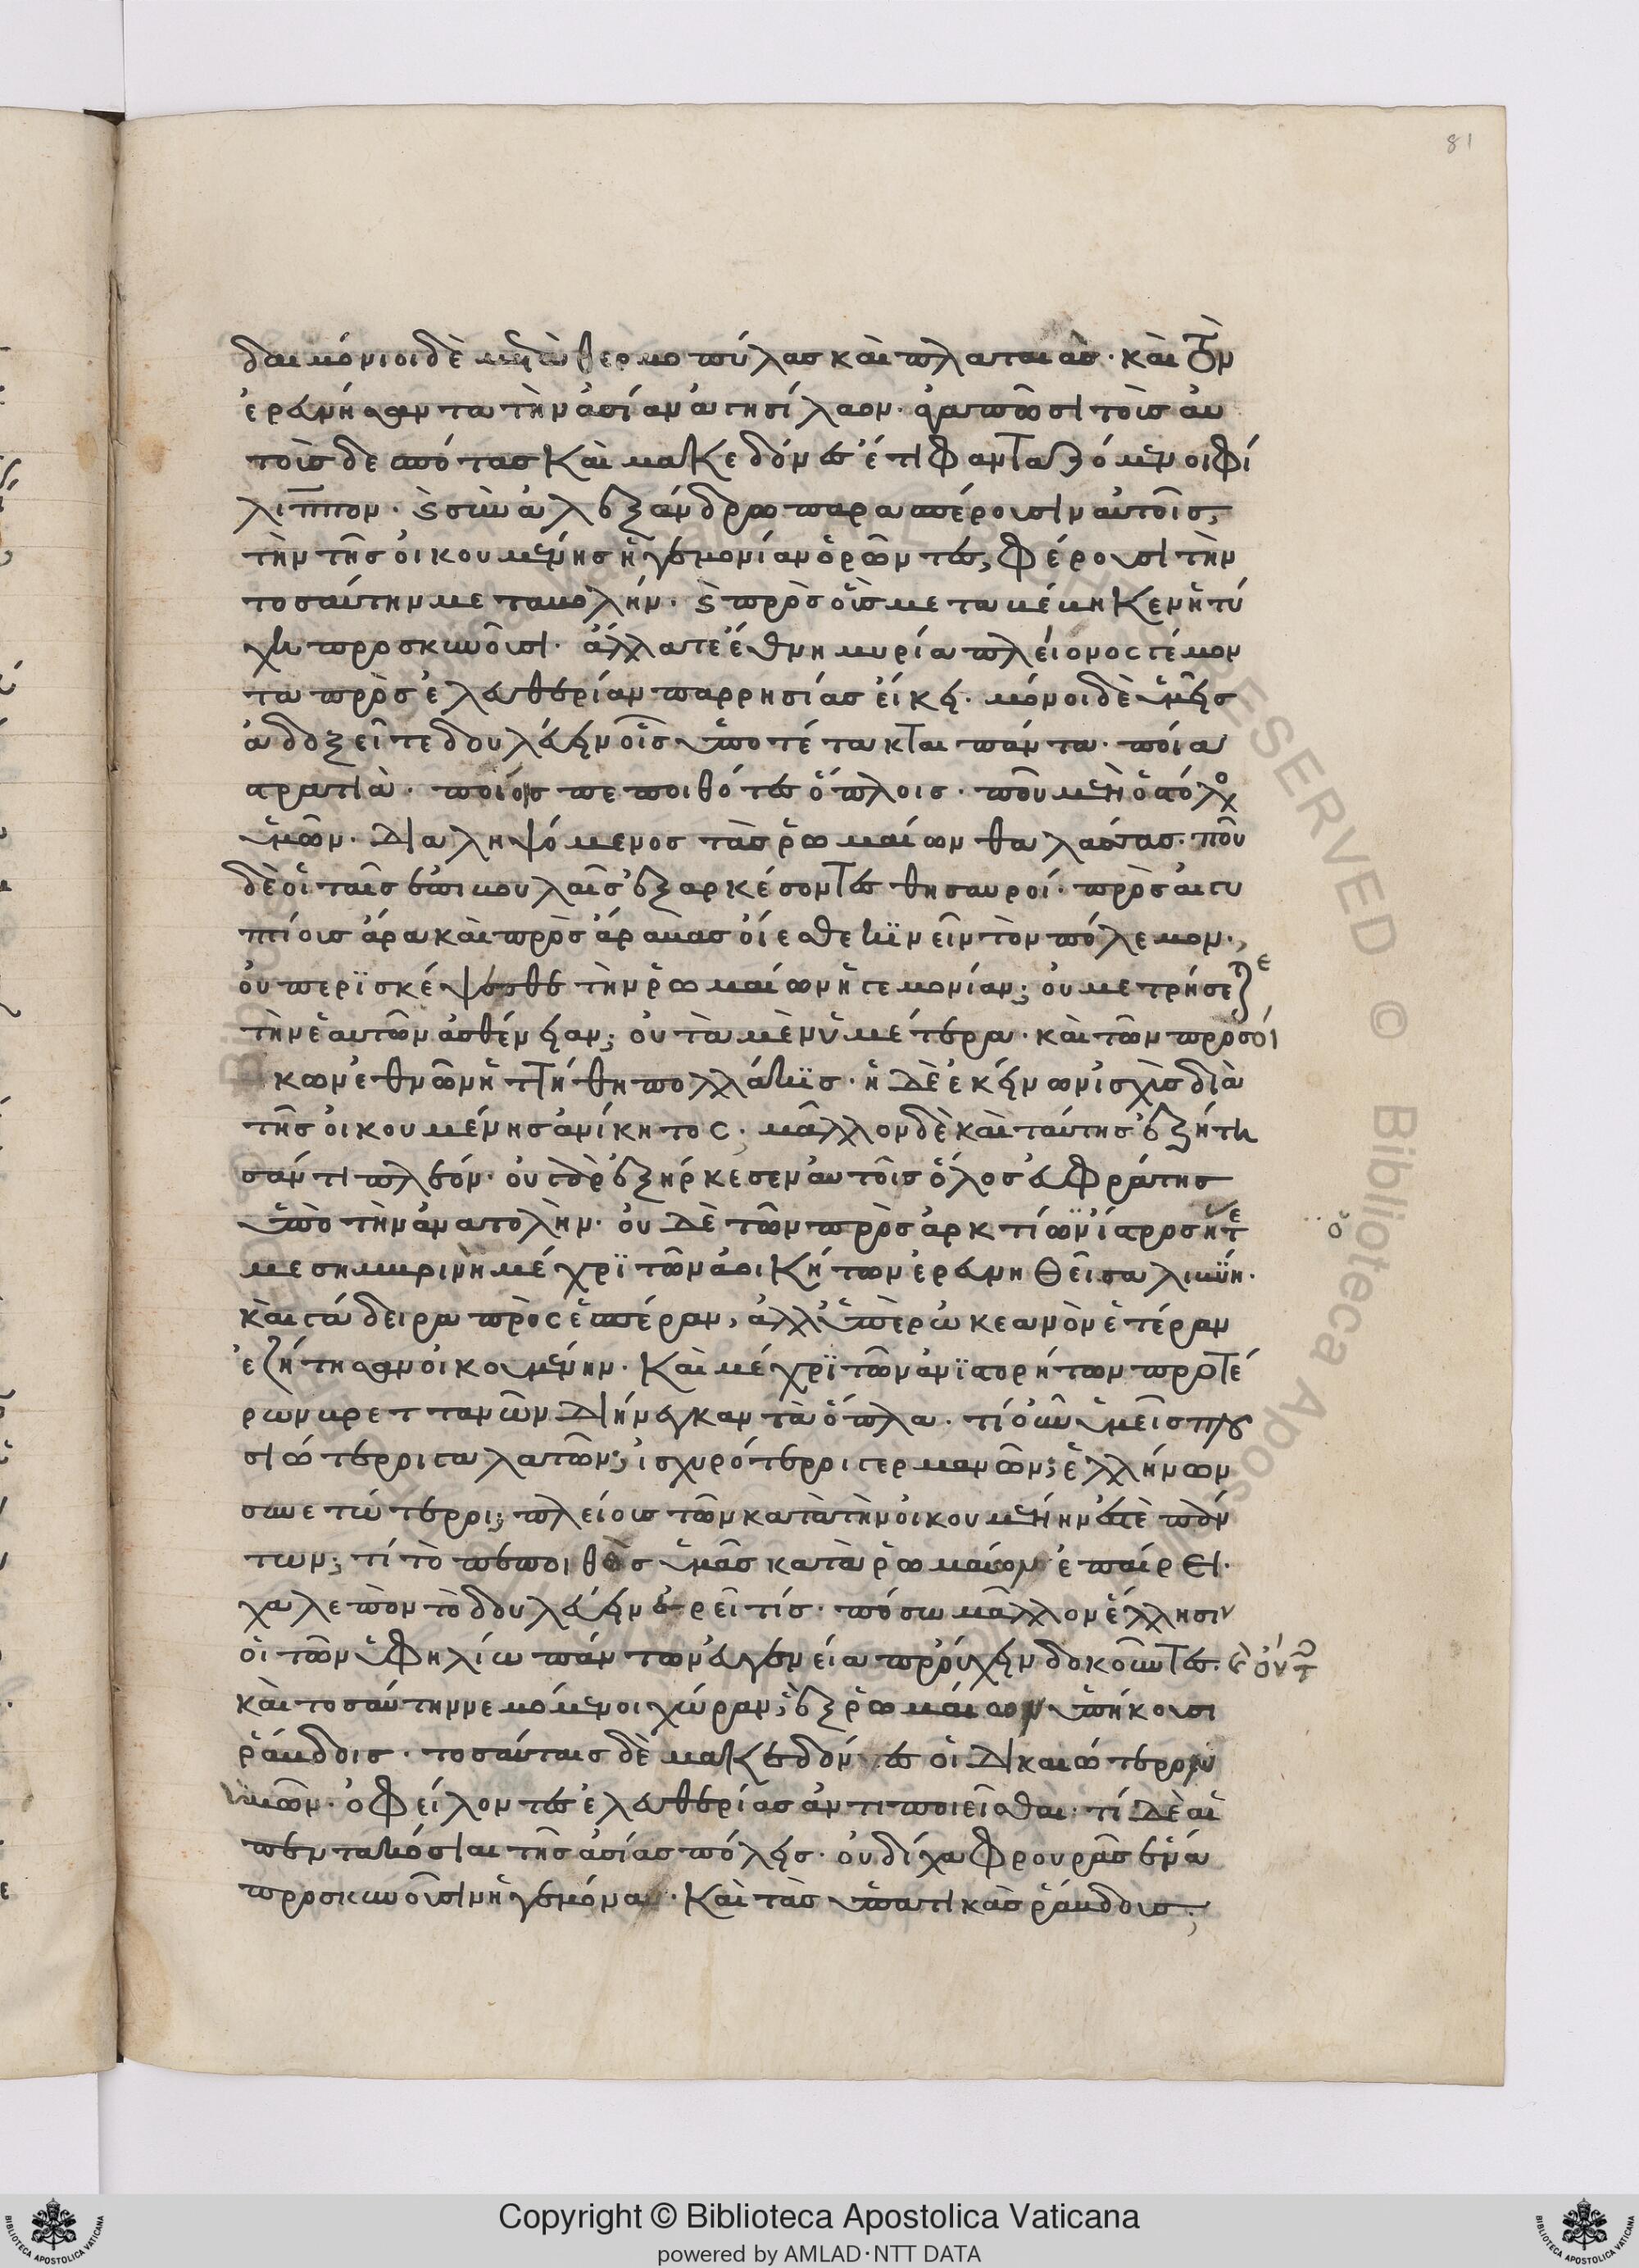 81
δαιμόνιοι δὲ μετὰ θερμοπύλας καὶ πλαταιάς· καὶ τὸν
ἐρευνήσαντα τὴν ἀσίαν ἀγησίλαον· ἀγαπῶσι τοὺς αὐ
τοὺς δεσπότας καὶ μακεδόνες ἔτι φανταζόμενοι φί
λιππον· καὶ σὺν ἀλεξάνδρω παρασπέρουσιν αὐτοῖς,
τὴν τῆς οἰκουμένης ἡγεμονίαν ὁρῶντες, φέρουσι τὴν
τοσαύτην μεταβολήν· καὶ πρὸς οὓς μεταβέβηκεν ἡ τύ
χη προσκυνοῦσι· ἄλλα τε ἔθνη μυρία πλείονος γέμον
τα πρὸς ἐλευθερίαν παρρησίας εἴκει· μόνοι δὲ ὑμεῖς
ἀδοξεῖτε δουλεύειν οἷς ὑποτέτακται πάντα· ποία
στρατιὰ· ποίοις πεποιθότες ὅπλοις· ποῦ μὲν ὁ στόλος
ὑμῶν· διαληψόμενος τὰς ῥωμαίων θαλάσσας· ποῦ
δὲ οἱ ταῖς ἐπιβουλαῖς ἐξαρκέσοντες θησαυροί· πρὸς αἰγυ
πτίους ἄρα καὶ πρὸς ἄραβας οἴεσθε κινεῖν τὸν πόλεμον·,
οὐ περισκέψεσθε τὴν ῥωμαίων ἡγεμονίαν; οὐ μετρήσετε
τὴν ἑαυτῶν ἀσθένειαν; οὐ τὰ μὲν ὑμέτερα· καὶ τῶν προσοί
κων ἐθνῶν ἡττήθη πολλάκις· ἡ δὲ ἐκείνων ἰσχὺς διὰ
τῆς οἰκουμένης ἀνίκητος· μᾶλλον δὲ καὶ ταύτης ἐξήτη
σάν τι πλέον· οὐ γὰρ ἐξήρκεσεν αὐτοῖς ὅλος εὐφράτης
ὑπὸ τὴν ἀνατολὴν· οὐδὲ τῶν προσαρκτίων ὁ ἴστρος ἥτε
μεσημβρινὴ μέχρι τῶν ἀοικήτων ἐρευνηθεῖσα λιβύη·
καὶ γάδειρα πρὸς ἑσπέραν, ἀλλ' ὑπὲρ ὠκεανὸν ἑτέραν
ἐζήτησαν οἰκουμένην· καὶ μέχρι τῶν ἀνιστορήτων προτέ
ρων βρεττανῶν διήνεγκαν τὰ ὅπλα· τί οὖν ὑμεῖς πλου
σιώτεροι γαλατῶν; ἰσχυρότεροι γερμανῶν; ἑλλήνων
συνετώτεροι; πλείους τῶν κατὰ τὴν οἰκουμένην ἐστὲ πάν
των; τί τὸ πεποιθὸς ὑμᾶς κατὰ ῥωμαίων ἐπαίρει·
χαλεπὸν τὸ δουλεύειν ἐρεῖ τίς· πόσω μᾶλλον ἕλλησιν
οἳ τῶν ὑφ' ἡλίω πάντων εὐγενεία προύχειν δοκοῦντες· ὄντ
καὶ τοσαύτην νεμόμενοι χώραν, ἓξ ῥωμαίων ὑπήκουσι
ῥάβδοις· τοσαύταις δὲ μακεδόνες οἱ δικαιώτερον
ὑμῶν· ὀφείλοντες ἐλευθερίας ἀντιποιεῖσθαι· τί δὲ αἱ
πεντακόσιαι τῆς ἀσίας πόλεις· οὐ δίχα φρουρᾶς ἕνα
προσκυνοῦσιν ἡγεμόνα· καὶ τὰς ὑπατικὰς ῥάβδους·
Copyright © Biblioteca Apostolica Vaticana
powered by AMLAD·NTT DATA